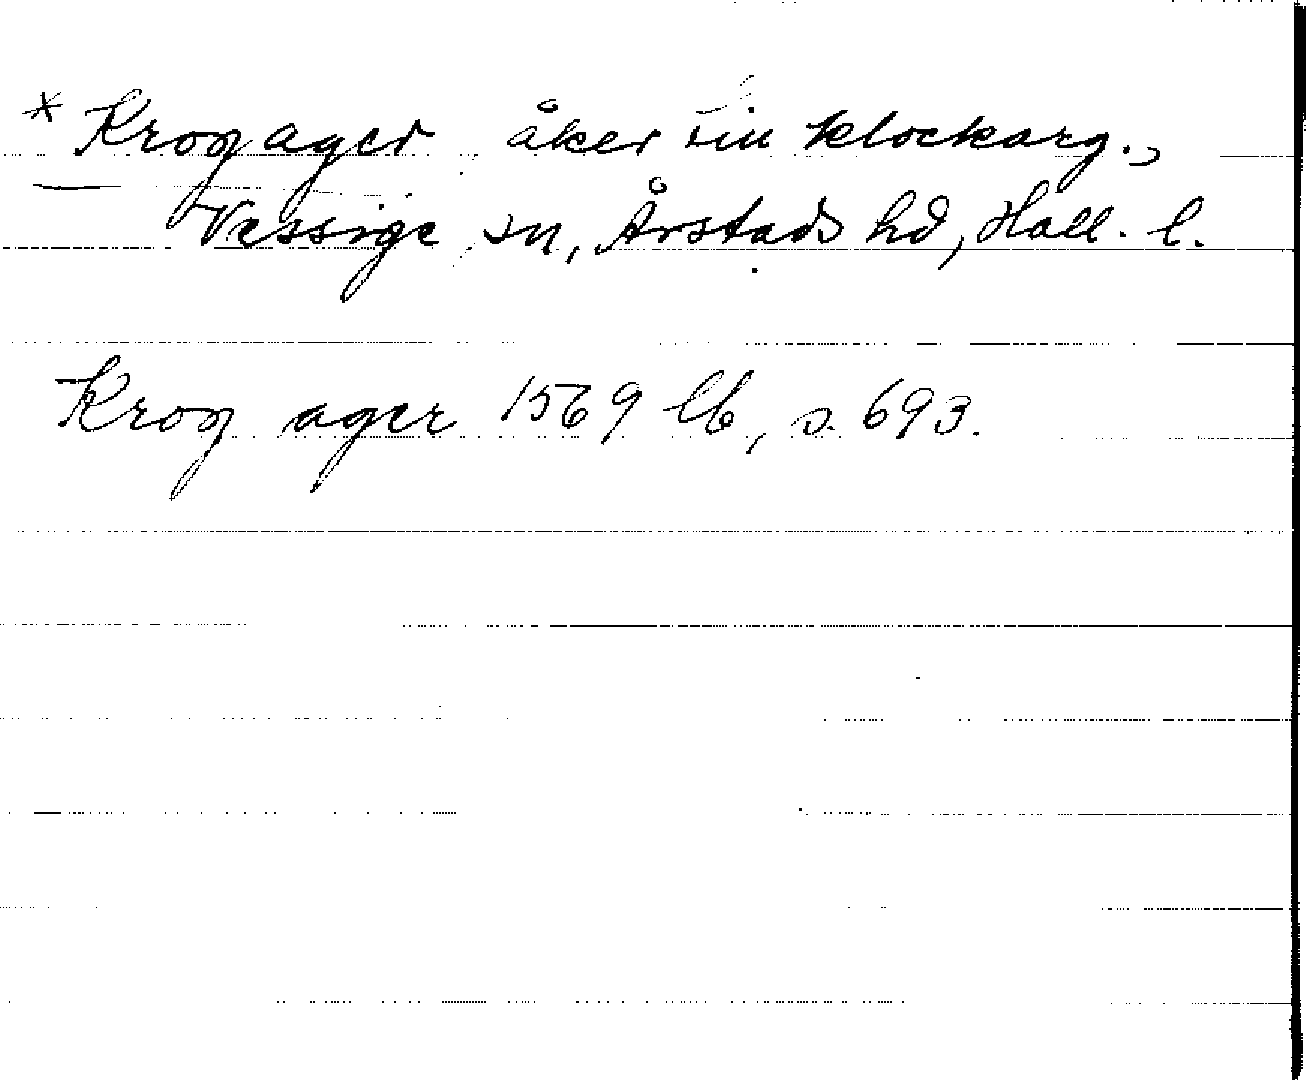 * Krogager åker till klockarg.,
Vessige sn, Årstads hd, Hall. l.
Krog ager 1569 lb, s. 693.